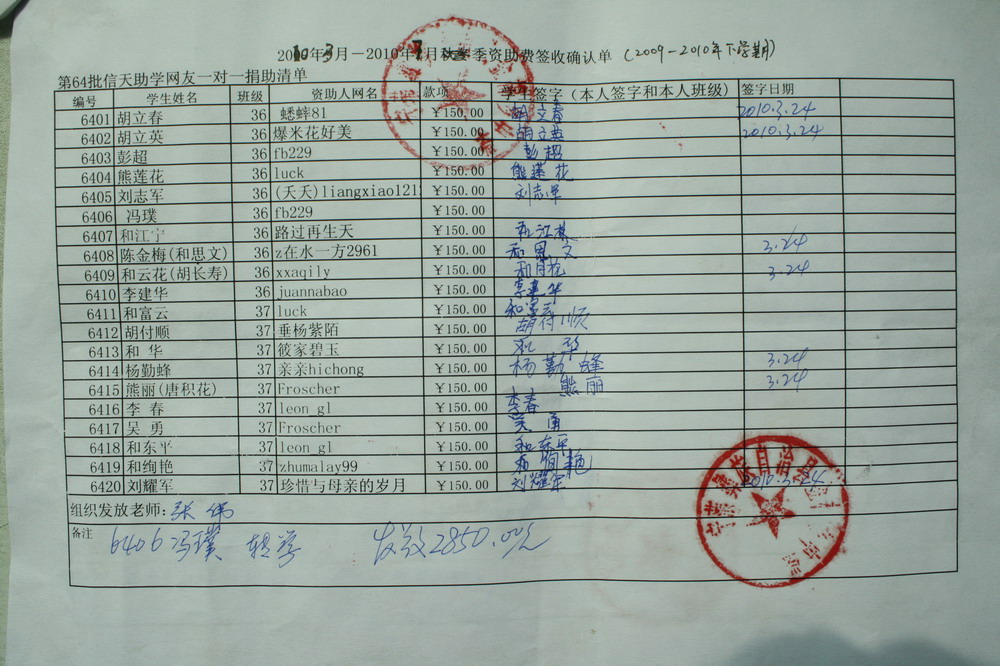 2010年3月-2010年7月秋冬季资助费签收确认单 (2009-2010年下学期)
第64批信天助学网友一对一捐助清单
编号 学生姓名 班级 资助人网名 款项 学生签字(本人签字和本人班级) 签字日期
6401 胡立春 36 蟋蟀81 ¥150.00 胡立春 2010.3.24
6402 胡立英 36 爆米花好美 ¥150.00 胡立英 2010.3.24
6403 彭超 36 fb229 ¥150.00 彭超
6404 熊莲花 36 luck ¥150.00 熊莲花
6405 刘志军 36 (天天)liangxiao121 ¥150.00 刘志军
6406 冯璞 36 fb229 ¥150.00
6407 和江宁 36 路过再生天 ¥150.00 和江
6408 陈金梅(和思文) 36 z在水一方2961 ¥150.00 和思文 3.24
6409 和云花(胡长寿) 36 xxaqily ¥150.00 和月花 3.24
6410 李建华 36 juannabao ¥150.00 李建华
6411 和富云 37 luck ¥150.00 和富云
6412 胡付顺 37 垂杨紫陌 ¥150.00 胡付顺
6413 和 华 37 筱家碧玉 ¥150.00 和 华
6414 杨勤蜂 37 亲亲hichong ¥150.00 杨勤蜂 3.24
6415 熊丽(唐积花) 37 Froscher ¥150.00 熊丽 3.24
6416 李 春 37 leon_gl ¥150.00 李春
6417 吴 勇 37 Froscher ¥150.00 吴勇
6418 和东平 37 leon_gl ¥150.00 和东平
6419 和绚艳 37 zhumalay99 ¥150.00 和绚艳
6420 刘耀军 37 珍惜与母亲的岁月 ¥150.00 刘耀军 2010.3.24
组织发放老师:张伟
备注 6406冯璞 转学 发放2850.00元